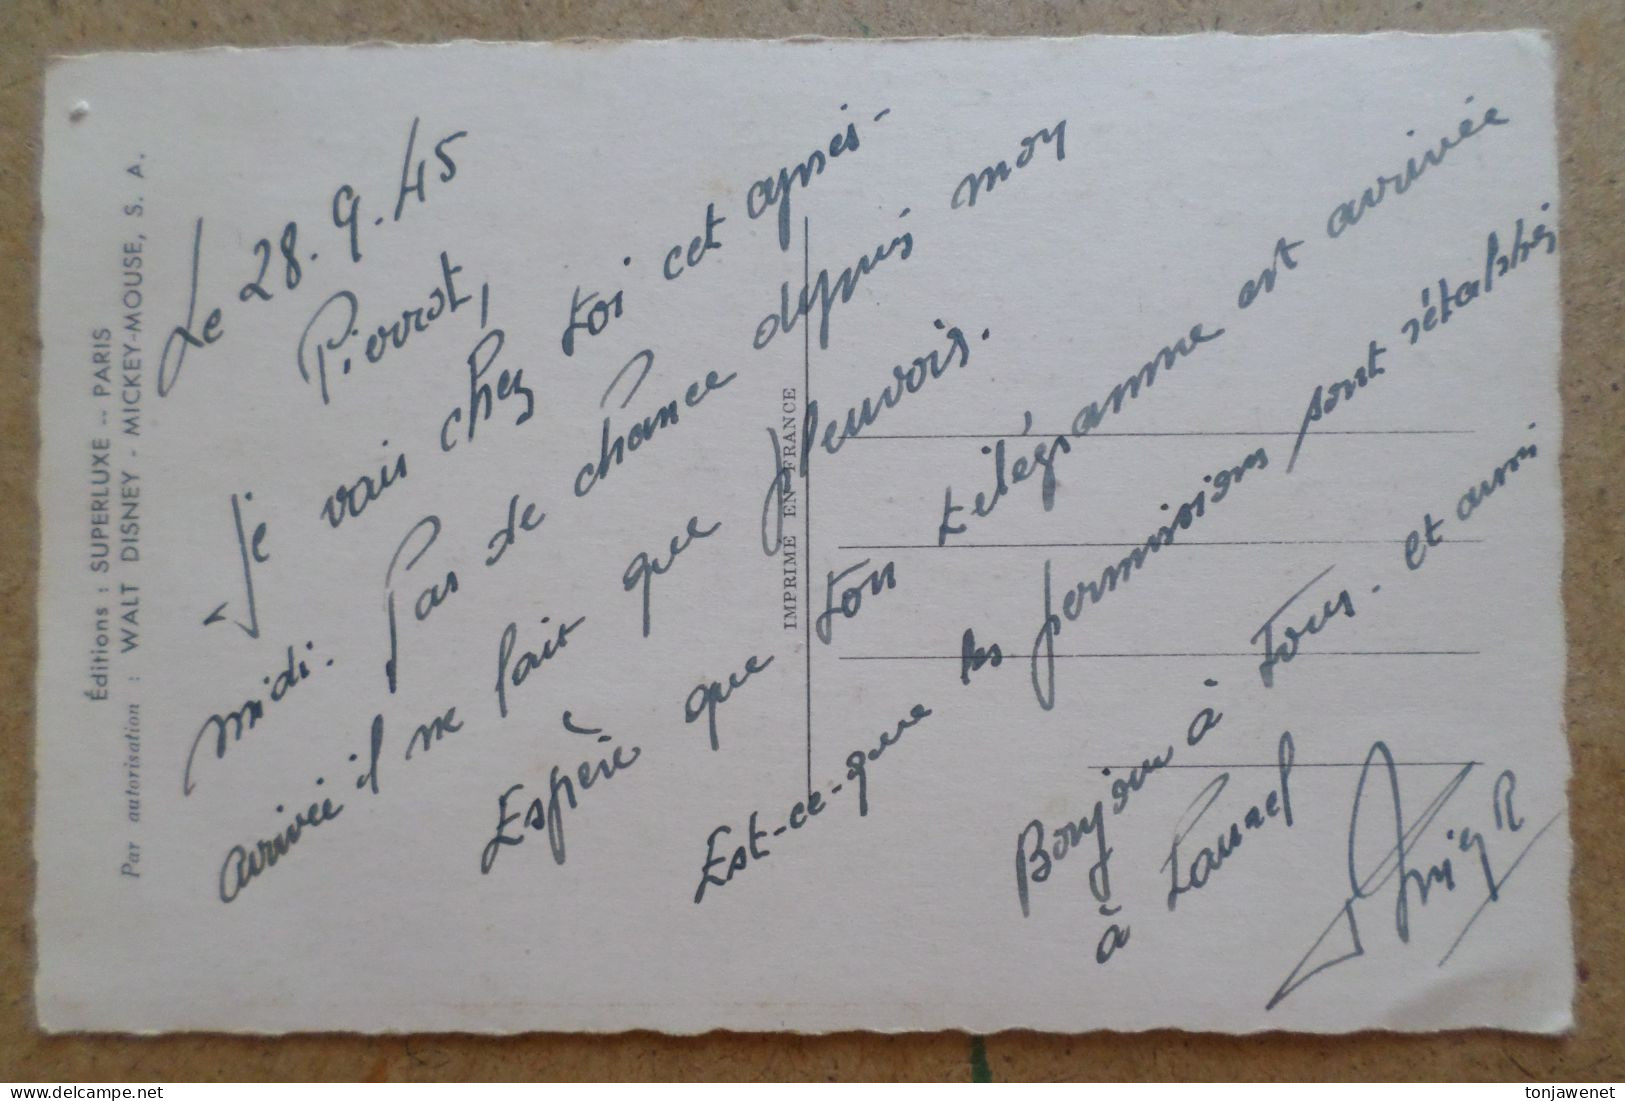 Éditions : SUPERLUXE -- PARIS
Par autorisation : WALT DISNEY - MICKEY-MOUSE, S. A.
IMPRIMÉ EN FRANCE
Le 28.9.45
Pierrot,
Je vais chez toi cet après-
midi. Pas de chance depuis moy
arrivée il ne fait que pleuvois.
Espère que ton télégramme est arrivée
Est-ce-que les permissions sont rétablies
Bonjour à Tous. et aussi
à
tonjawenet
delcampe.net